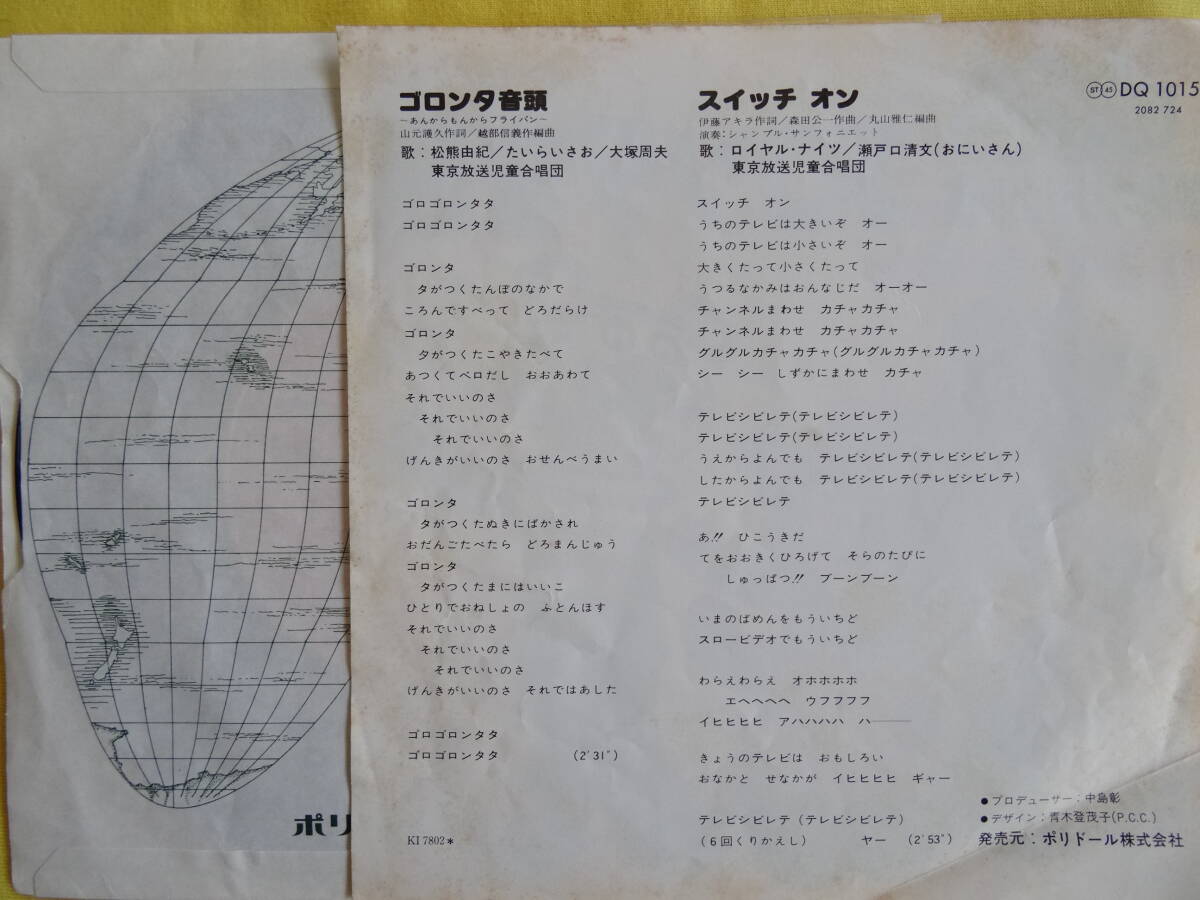 ゴロンタ音頭
〜あんからもんからフライパン〜
山元護久作詞／越部信義作編曲
歌：松熊由紀／たいらいさお／大塚周夫
東京放送児童合唱団
ゴロゴロンタタ
ゴロゴロンタタ
ゴロンタ
タがつくたんぼのなかで
ころんですべって どろだらけ
ゴロンタ
タがつくたこやきたべて
あつくてベロだし おおあわて
それでいいのさ
それでいいのさ
それでいいのさ
げんきがいいのさ おせんべうまい
ゴロンタ
タがつくたぬきにばかされ
おだんごたべたら どろまんじゅう
ゴロンタ
タがつくたまにはいいこ
ひとりでおねしょの ふとんほす
それでいいのさ
それでいいのさ
それでいいのさ
げんきがいいのさ それではあした
ゴロゴロンタタ
ゴロゴロンタタ (2'31")
KI 7802*
スイッチ オン
伊藤アキラ作詞／森田公一作曲／丸山雅仁編曲
演奏：シャンブル・サンフォニエット
歌：ロイヤル・ナイツ／瀬戸口清文(おにいさん)
東京放送児童合唱団
スイッチ オン
うちのテレビは大きいぞ オー
うちのテレビは小さいぞ オー
大きくたって小さくたって
うつるなかみはおんなじだ オーオー
チャンネルまわせ カチャカチャ
チャンネルまわせ カチャカチャ
グルグルカチャカチャ(グルグルカチャカチャ)
シー シー しずかにまわせ カチャ
テレビシビレテ(テレビシビレテ)
テレビシビレテ(テレビシビレテ)
うえからよんでも テレビシビレテ(テレビシビレテ)
したからよんでも テレビシビレテ(テレビシビレテ)
テレビシビレテ
あ!! ひこうきだ
てをおおきくひろげて そらのたびに
しゅっぱつ!! ブーンブーン
いまのばめんをもういちど
スロービデオでもういちど
わらえわらえ オホホホホ
エヘヘヘヘ ウフフフフ
イヒヒヒヒ アハハハハ ハ――
きょうのテレビは おもしろい
おなかと せなかが イヒヒヒヒ ギャー
テレビシビレテ (テレビシビレテ)
(6回くりかえし) ヤー (2'53")
ST 45 DQ 1015
2082 724
●プロデューサー：中島彰
●デザイン：青木登茂子(P.C.C.)
発売元：ポリドール株式会社
ポリ